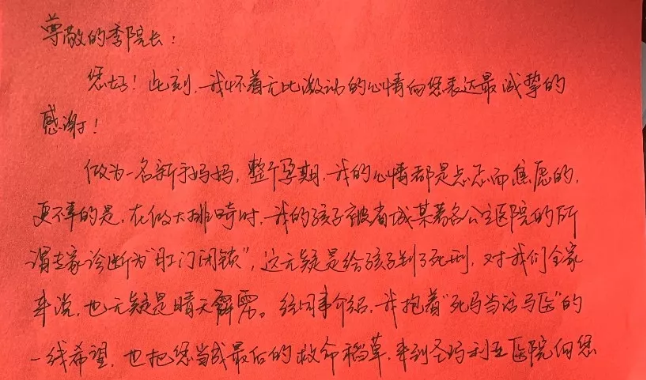 尊敬的季院长：
您好！此刻，我怀着无比激动的心情向您表达最诚挚的
感谢！
做为一名新手妈妈，整个孕期，我的心情都是忐忑而焦虑的，
更不幸的是，在做大排畸时，我的孩子被省城某著名公立医院的所
谓专家诊断为“肛门闭锁”，这无疑是给孩子判了死刑，对我们全家
来说，也无疑是晴天霹雳。经同事介绍，我抱着“死马当活马医”的
一线希望，也把您当成最后的救命稻草，来到圣玛利亚医院向您